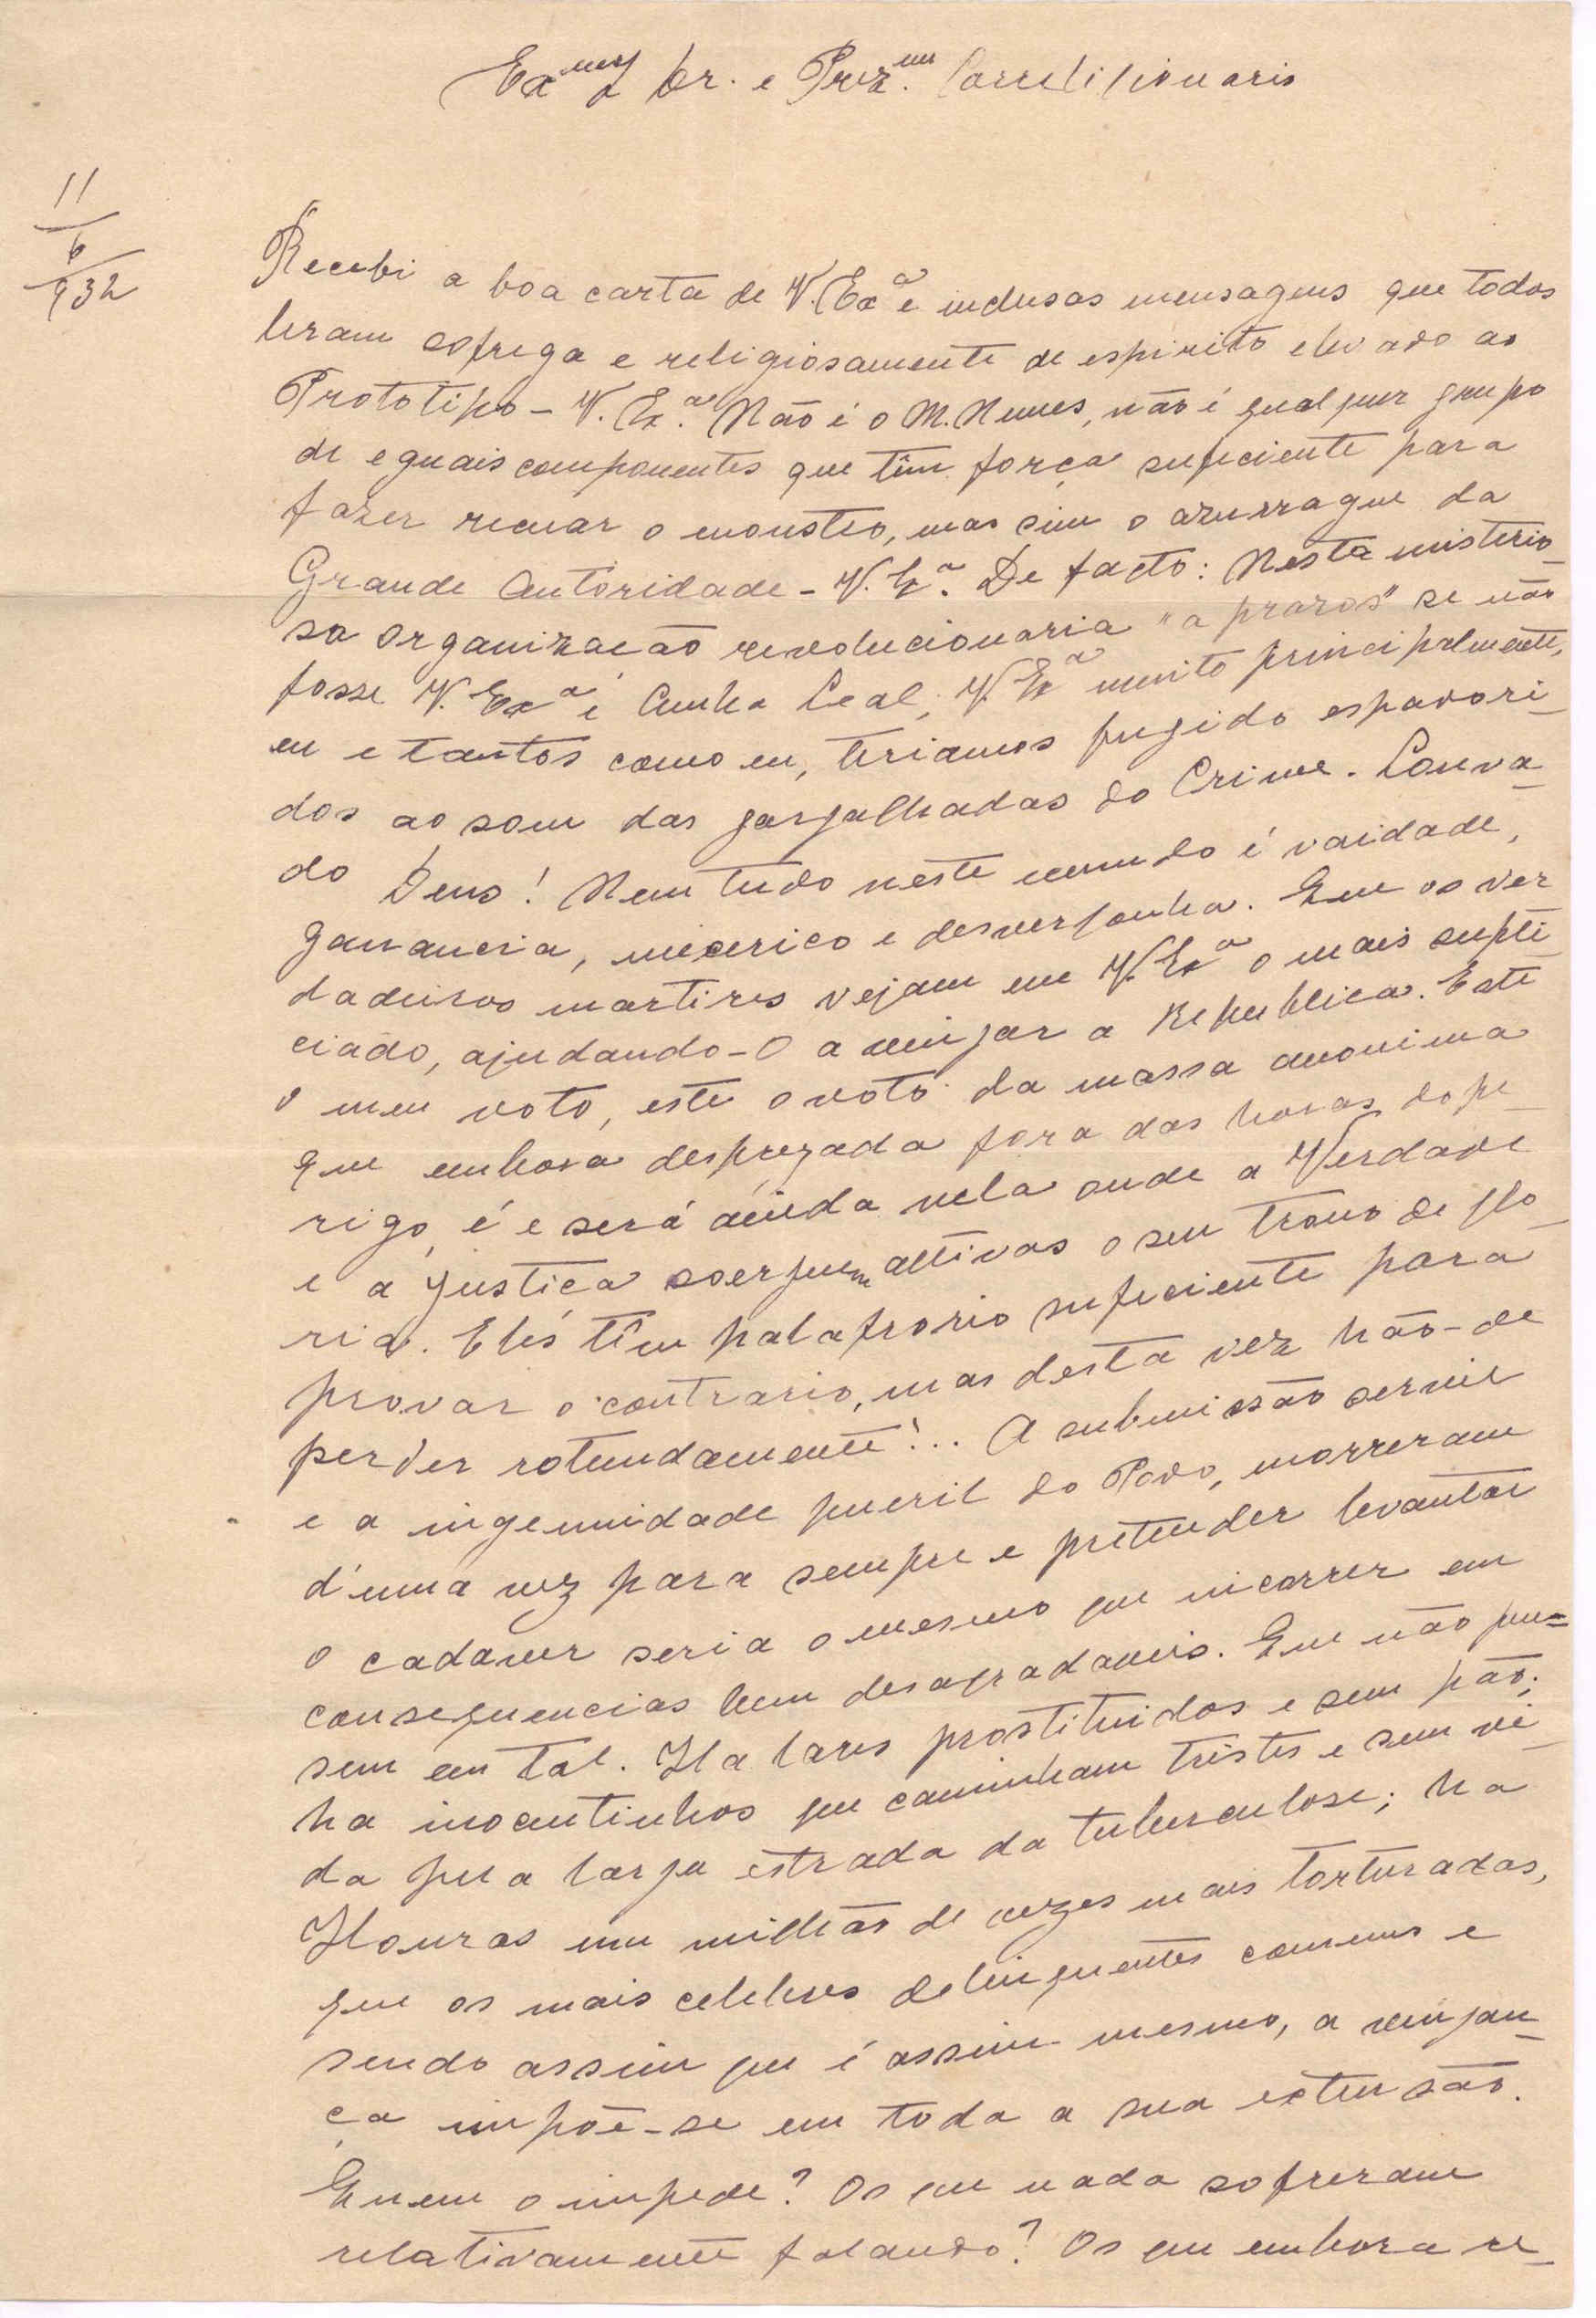 Ex.mo Dr. e Prez.mo Correligionario
11
6
932
Recebi a boa carta de V. Exª e inclusas mensagens que todos
leram sofrega e religiosamente de espirito elevado ao
Prototipo - V. Exª. Não é o M. Nunes, não é qualquer grupo
de eguais componentes que têm força suficiente para
fazer recuar o monstro, mas sim o azurrague da
Grande Autoridade - V. Exª. De facto: Nesta misterio_
sa organização revolucionaria "a prazos" se não
fosse V. Exª e Cunha Leal, V. Exª muito principalmente,
eu e tantos como eu, teriamos fugido espavori_
dos ao som das gargalhadas do Crime. Louva_
do Deus! Nem tudo neste mundo é vaidade,
ganancia, mexerico e desvergonha. Que os ver_
dadeiros martires vejam em V. Exª o mais supli_
ciado, ajudando-O a vingar a Republica. Este
o meu voto, este o voto da massa anonima
que embora desprezada fora das horas do pe_
rigo, é e será ainda nela onde a Verdade
e a Justiça soerguem altivas o seu trono de glo_
ria. Eles têm palafrorio suficiente para
provar o contrario, mas desta vez hão-de
perder rotundamente!.. A submissão servil
e a ingenuidade pueril do Povo, morreram
d'uma vez para sempre e pretender levantar
o cadaver seria o mesmo que incorrer em
consequencias bem desagradaveis. Que não pen=
sem em tal. Ha lares prostituidos e sem pão;
ha inocentinhos que caminham tristes e sem vi_
da pela larga estrada da tuberculose; ha
Honras um milhão de vezes mais torturadas,
que os mais celebres delinquentes comuns e
sendo assim que é assim mesmo, a vingan_
ça impõe-se em toda a sua extensão.
Quem o impede? Os que nada sofreram
relativamente falando? Os que embora re_